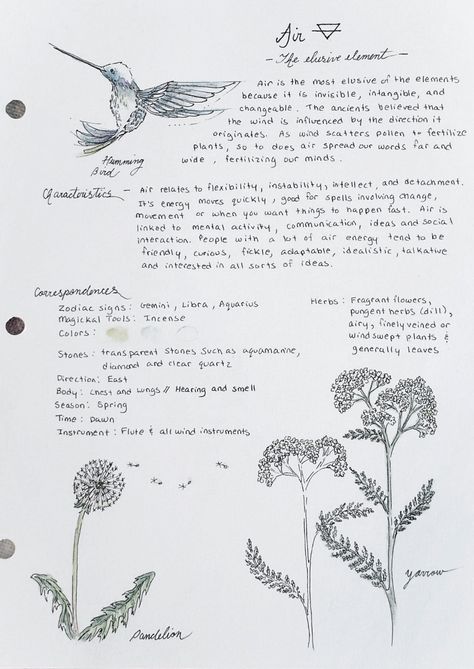 Air
- The elusive element -
Air is the most elusive of the elements
because it is invisible, intangible, and
changeable. The ancients believed that
the wind is influenced by the direction it
originates. As wind scatters pollen to fertilize
plants, so to does air spread our words far and
wide, fertilizing our minds.
Humming
Bird
Characteristics - Air relates to flexibility, instability, intellect, and detachment.
It's energy moves quickly, good for spells involving change,
movement or when you want things to happen fast. Air is
linked to mental activity, communication, ideas and social
interaction. People with a lot of air energy tend to be
friendly, curious, fickle, adaptable, idealistic, talkative
and interested in all sorts of ideas.
Correspondences
Zodiac signs: Gemini, Libra, Aquarius
Magickal Tools: Incense
Colors:
Stones: transparent stones such as aquamarine,
diamond and clear quartz
Direction: East
Body: Chest and Lungs // Hearing and smell
Season: Spring
Time: Dawn
Instrument: Flute & all wind instruments
Herbs: Fragrant flowers,
pungent herbs (dill),
airy, finely veined or
wind swept plants &
generally leaves
Yarrow
Dandelion